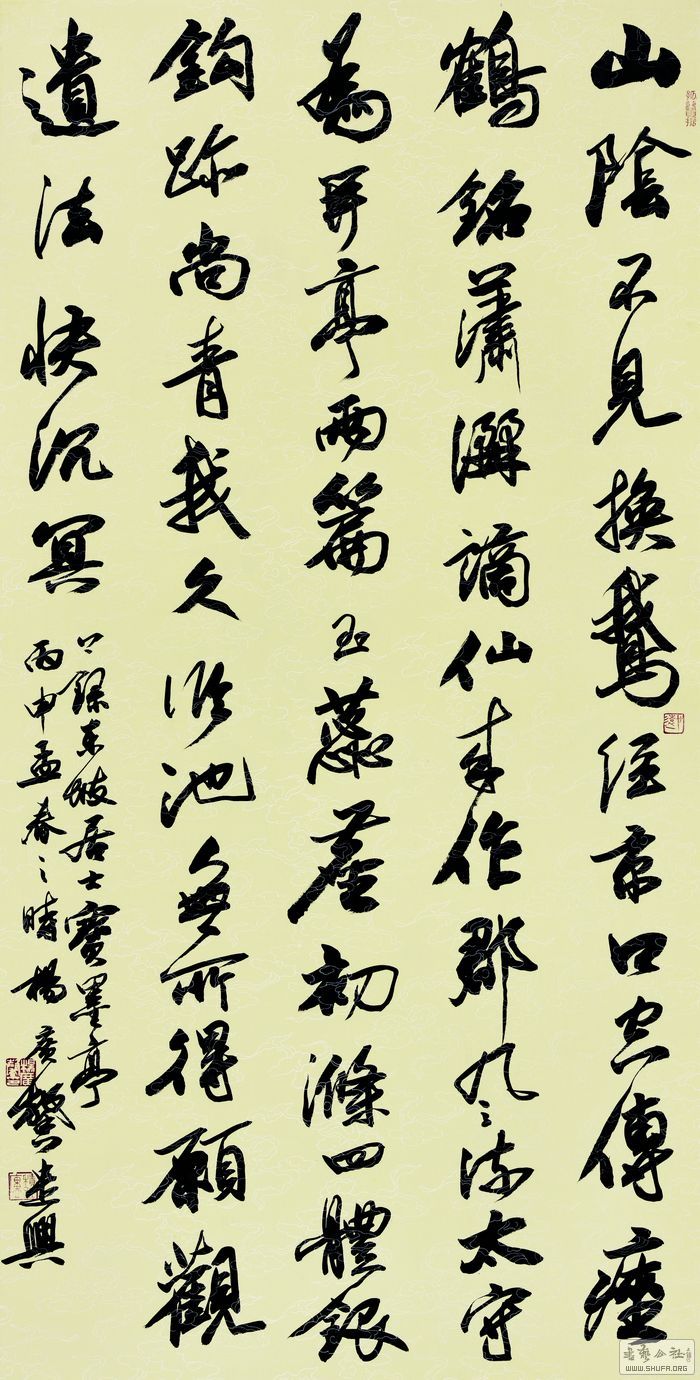 山陰不見換鵝經京口空傳瘞
鶴銘瀟灑謫仙来作郡風流太守
為開亭兩篇玉蕊塵初滌四體銀
鈎跡尚青我久臨池無所得願觀
遺法快沉冥
上錄東坡居士寶墨亭
丙申孟春之時楊廣馨興
书艺公社
WWW.SHUFA.ORG